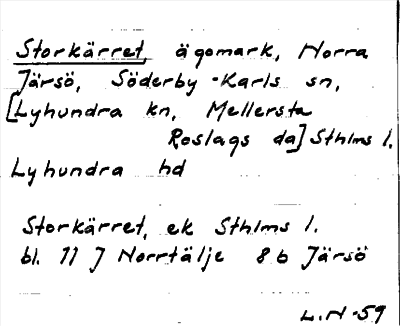 Storkärret, ägomark, Norra
Järsö, Söderby-Karls sn,
[Lyhundra kn, Mellersta
Roslags da] Sthlms l.
Lyhundra hd
Storkärret, ek Sthlms l.
bl. 11 J Norrtälje 8b Järsö
L.N-59